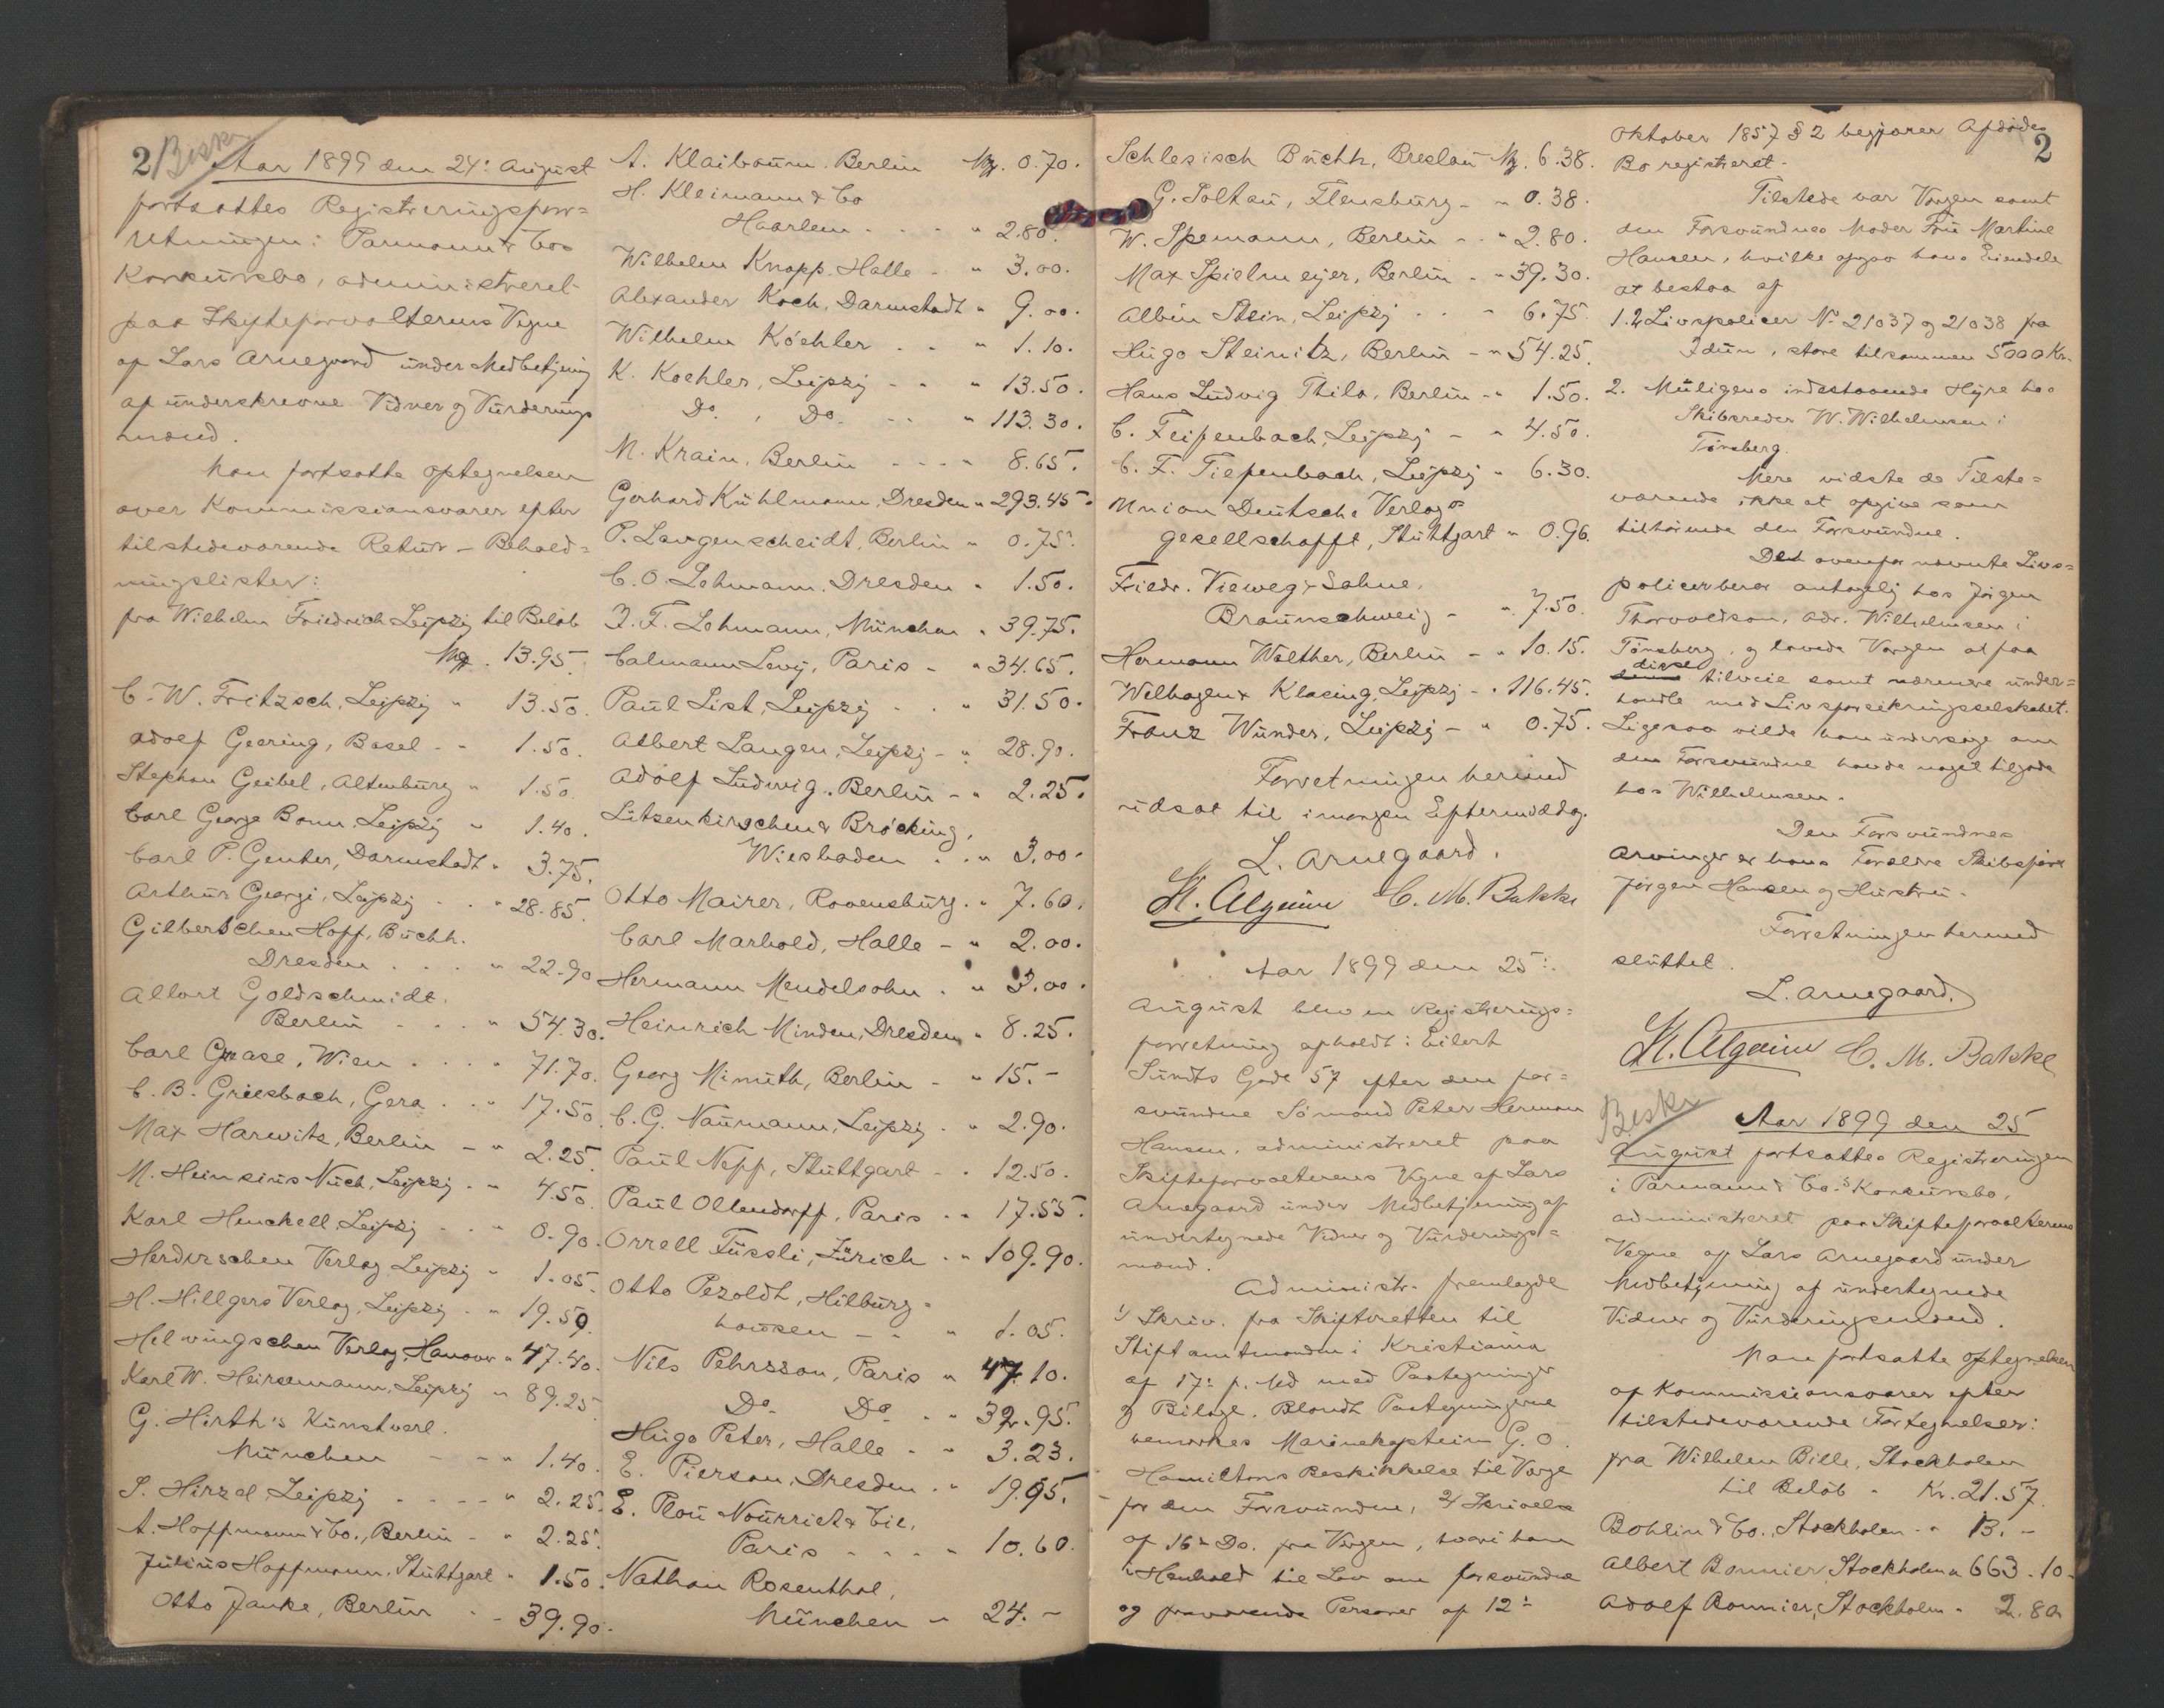 2
Beskr
Aar 1899 den 24: August
fortsattes Registreringsfor=
retningen i Parmann & Cos
Konkursbo, administreret
paa Skifteforvalterens Vegne
af Lars Arnegaard under Medbetjening
af underskrevne Vidner og Vurderings
mænd.
Man fortsatte Optegnelsen
over Kommissionsvarer efter
tilstedeværende Retur- Behold=
ningslister:
fra Wilhelm Friedrich Leipzig til Beløb
Mk. 13.95
C. W. Fritzsch, Leipzig " 13.50.
Adolf Geering, Basel - " 1.50.
Stephan Geibel, Altenburg " 1.50.
Carl George Bonn, Leipzig " 1.40.
Carl P. Genter, Darmstadt " 3.75.
Arthur Georgi, Leipzig - " 28.85.
Gilbertschen Hoff. Buchh.
Dresden . . . " 22.90
Albert Goldschmidt.
Berlin - . . " 54.30.
Carl Graese, Wien . . . " 71.70.
C. B. Griesbach, Gera . . " 17.50
Max Harwitz, Berlin - " 2.25.
M. Heinsius Nach. Leipzig . " 4.50
Karl Henckell Leipzig - . " 0.90.
Herderschen Verlag Leipzig " 1.05.
H. Hillgers Verlag, Leipzig . " 19.50.
Helwingschen Verlag, Hanover " 47.40.
Karl W. Heirsemann, Leipzig " 89.25
G. Hirth's Kunstverl.
München - - " 1.40.
S. Hirzel, Leipzig . - - - " 2.25.
A. Hoffmann & Co., Berlin - " 2.25.
Julius Hoffmann. Stuttgart " 1.50.
Otto Janke, Berlin . . 39.90.
A. Klaibaum. Berlin Mk. 0.70.
H. Kleimann & Co
Haarlem . . . " 2.80.
Wilhelm Knapp. Halle - " 3.00.
Alexander Koch, Darmstadt " 9.00.
Wilhelm Köehler . . " 1.10.
K. Koehler, Leipzig - . " 13.50.
Do. , Do. - - " 113.30.
M. Krain, Berlin - - - " 8.65.
Gerhard Kühlmann, Dresden " 293.45.
P. Langenscheidt, Berlin " 0.75.
C. O. Lehmann. Dresden " 1.50.
J. F. Lehmann, München " 39.75.
Calmann Levy, Paris - " 34.65.
Paul List, Leipzig . . " 31.50.
Albert Langen, Leipzig - " 28.90.
Adolf Ludwig. Berlin - " 2.25.
Lützenkirschen & Bröcking,
Wiesbaden . . " 3.00.
Otto Mairer, Ravensburg. " 7.60.
Carl Marhold, Halle - " 2.00.
Hermann Mendelsohn . " 3.00.
Heinrich Minden, Dresden " 8.25.
Georg Minuth, Berlin - " 15.-
C. G. Naumann, Leipzig . " 2.90.
Paul Neff, Stuttgart - . 12.50.
Paul Ollendorff, Paris . " 17.55.
Orrell Füssli, Zürich . " 109.90.
Otto Pezoldt, Hilburg=
hausen - - " 1.05.
Nils Pehrsson, Paris " 47.10.
Do. Do. . " 32.95.
Hugo Peter, Halle - " 3.23.
E. Pierson, Dresden . " 19.95.
E. Plou Nourriet & Cie,
Paris - - - " 10.60.
Nathan Rosenthal,
München " 24.-
Schlesisch Buchh., Breslau Mk. 6.38.
G. Soltau, Flensburg - " 0.38.
W. Spemann, Berlin - " 2.80.
Max Spielmeyer, Berlin - " 39.30.
Albin Stein, Leipzig . . " 6.75.
Hugo Steinitz, Berlin - " 54.25.
Hans Ludwig Thilo, Berlin " 1.50.
C. Teifenbach, Leipzig - " 4.50.
C. F. Tiefenbach, Leipzig " 6.30.
Union Deutsche Verlags
gesellschafft, Stuttgart " 0.96.
Friedr. Vieweg & Sohne.
Braunschweig - " 7.50.
Hermann Walther, Berlin - " 10.15.
Welhagen & Klasing, Leipzig - " 116.45.
Franz Wunder, Leipzig - " 0.75.
Forretningen hermed
udsat til imorgen Eftermiddag.
L. Arnegaard.
C. M. Bakke
Aar 1899 den 25:
August blev en Registrerings=
forretning afholdt i Eilert
Sundts Gade 57 efter den for=
svundne Sömand Peter Herman
Hansen, administreret paa
Skifteforvalterens Vegne af Lars
Arnegaard under Medbetjening af
undertegnede Vidner og Vurderings=
mænd.
Administr. fremlagde
1/ Skriv. fra Skifteretten til
Stiftamtmanden i Kristiania
af 17: f. Md med Paategninger
og Bilage. Blandt Paategningerne
bemærkes Marinekaptein G. O.
Hamiltons Beskikkelse til Værge
for den Forsvundne, 2/ Skrivelse
af 16: Do. fra Værgen, hvori han
i Henhold til Lov om forsvundne
og fraværende Personer af 12:
2
Oktober 1857 § 2 begjærer Afdødes
Bo registreret.
Tilstede var Værgen samt
den Forsvundnes Moder Fru Martine
Hansen, hvilke opgav hans Eiendele
at bestaa af
1. 2 Livspolicer No 21037 og 21038 fra
Idun, store tilsammen 5000 Kr.
2. Muligens indestaaende Hyre hos
Skibsreder W. Wilhelmsen i
Tönsberg.
Mere vidste de Tilste=
værende ikke at opgive som
tilhörende den Forsvundne.
De ovenfor nævnte Livs=
policer beror antagelig hos Jörgen
Thorvaldsen, adr. Wilhelmsen i
Tönsberg, og lovede Værgen at faa
disse tilveie samt nærmere under=
handle med Livsforsikringsselskabet.
Ligesaa vilde han undersøge om
den Forsvundne havde noget tilgode
hos Wilhelmsen.
Den Forsvundnes
Arvinger er hans Forældre Skibsförer
Jörgen Hansen og Hustru.
Forretningen hermed
sluttet.
L. Arnegaard.
C. M. Bakke
Beskr
Aar 1899 den 25
August fortsattes Registreringen
i Parmann & Co.'s Konkursbo,
administreret paa Skifteforvalterens
Vegne af Lars Arnegaard under
Medbetjening af undertegnede
Vidner og Vurderingsmænd.
Man fortsatte Optegnelsen
af Kommissionsvarer efter
tilstedeværende Fortegnelser:
fra Wilhelm Bille, Stockholm
til Beløb - Kr. 21.57.
Bohlin & Co., Stockholm - " 13.-
Albert Bonnier, Stockholm " 663.10.
Adolf Bonnier, Stockholm - 2.80